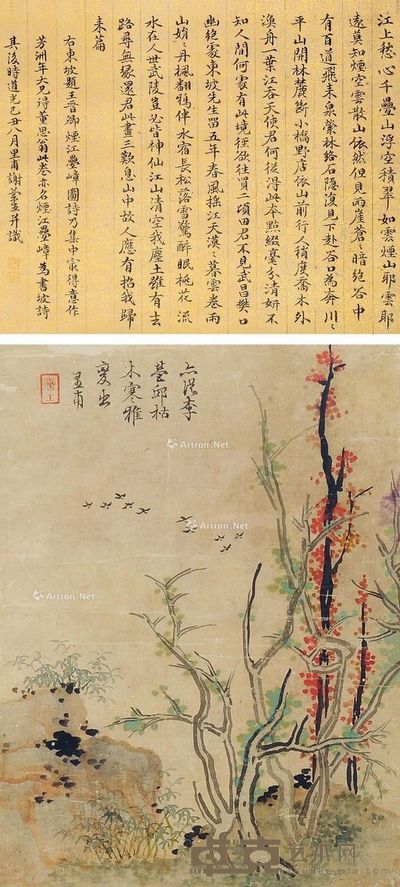 江上愁心千疊山浮空積翠如雲煙山耶雲耶
遠莫知煙空雲散山依然但見兩崖蒼蒼暗絕谷中
有百道飛来泉縈林絡石隱復見下赴谷口為奔川川
平山開林麓斷小橋野店依山前行人稍度喬木外
漁舟一葉江吞天使君何從得此本點綴毫分清妍不
知人間何處有此境徑欲往買二頃田君不見武昌樊口
幽絕處東坡先生留五年春風搖江天漠漠暮雲卷雨
山娟娟丹楓翻鴉伴水宿長松落雪驚醉眠桃花流
水在人世武陵豈必皆神仙江山清空我塵土雖有去
路尋無緣還君此畫三歎息山中故人應有招我歸
来篇
右東坡題王晉卿煙江疊嶂圖詩乃集中最得意作
芳洲年六兄得董思翁此卷亦名煙江疊嶂為書坡詩
其後時道光己丑八月里甫謝蘭生并識
李
營邱枯
木寒雅
里甫
Artron.Net
Artron.Net
Artron.Net
Artron.Net
Artron.Net